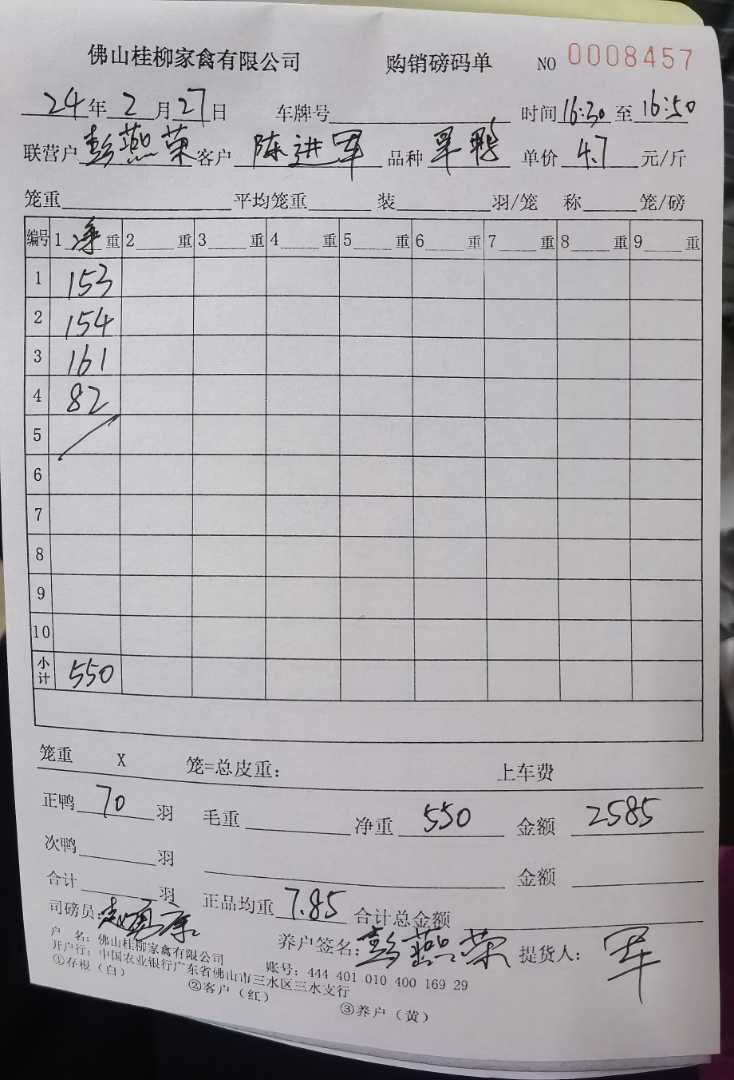 佛山桂柳家禽有限公司 购销磅码单 NO 0008457
24年2月27日 车牌号 时间16:30至16:50
联营户彭燕荣客户陈进军品种旱鸭单价4.7元/斤
笼重 平均笼重 装 羽/笼 称 笼/磅
编号 1净重 2 重 3 重 4 重 5 重 6 重 7 重 8 重 9 重
1 153
2 154
3 161
4 82
5
6
7
8
9
10
小计 550
笼重 X 笼=总皮重： 上车费
正鸭70羽 毛重 净重550 金额2585
次鸭 羽 金额
合计 羽 正品均重7.85 合计总金额
司磅员： 养户签名：彭燕荣 提货人：军
户 名：佛山桂柳家禽有限公司 账号：444 401 010 400 169 29
开户行：中国农业银行广东省佛山市三水区三水支行
①存根（白） ②客户（红） ③养户（黄）